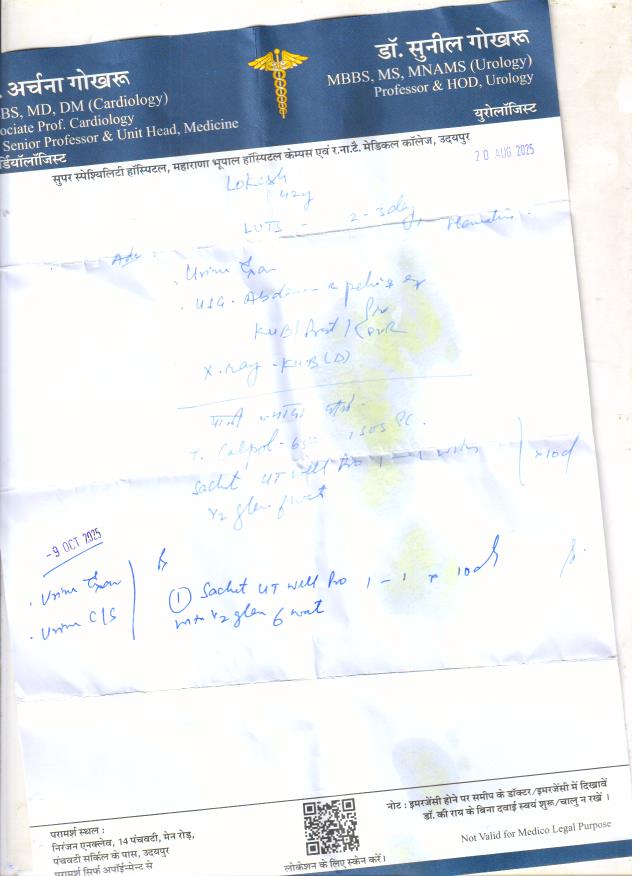 . अर्चना गोखरू
BS, MD, DM (Cardiology)
ociate Prof. Cardiology
Senior Professor & Unit Head, Medicine
र्डियॉलॉजिस्ट
डॉ. सुनील गोखरू
MBBS, MS, MNAMS (Urology)
Professor & HOD, Urology
यूरोलॉजिस्ट
सुपर स्पेश्यिलिटी हॉस्पिटल, महाराणा भूपाल हॉस्पिटल केम्पस एवं र.ना.टै. मेडिकल कॉलेज, उदयपुर
20 AUG 2025
Lokesh
42y
LUTS - 2-3 day,
Adv
. Urine
. USG. Abdomen
KUB/Prost/PVR
X. ray - KUB (D)
पानी ज्यादा
T. Calpol - 650 1 SOS
Sachet UT Well Pro 1 - 1 x 10d
x 1/2 glass
-9 OCT 2025
. Urine
. Urine C/S
① Sachet UT Well Pro 1 - 1 x 10d
1/2 glass
परामर्श स्थल :
निरंजन एनक्लेव, 14 पंचवटी, मेन रोड़,
पंचवटी सर्किल के पास, उदयपुर
परामर्श सिर्फ अपॉईन्मेन्ट से
लोकेशन के लिए स्केन करें।
नोट : इमरजेंसी होने पर समीप के डॉक्टर/इमरजेंसी में दिखावें
डॉ. की राय के बिना दवाई स्वयं शुरू/चालु न रखें ।
Not Valid for Medico Legal Purpose